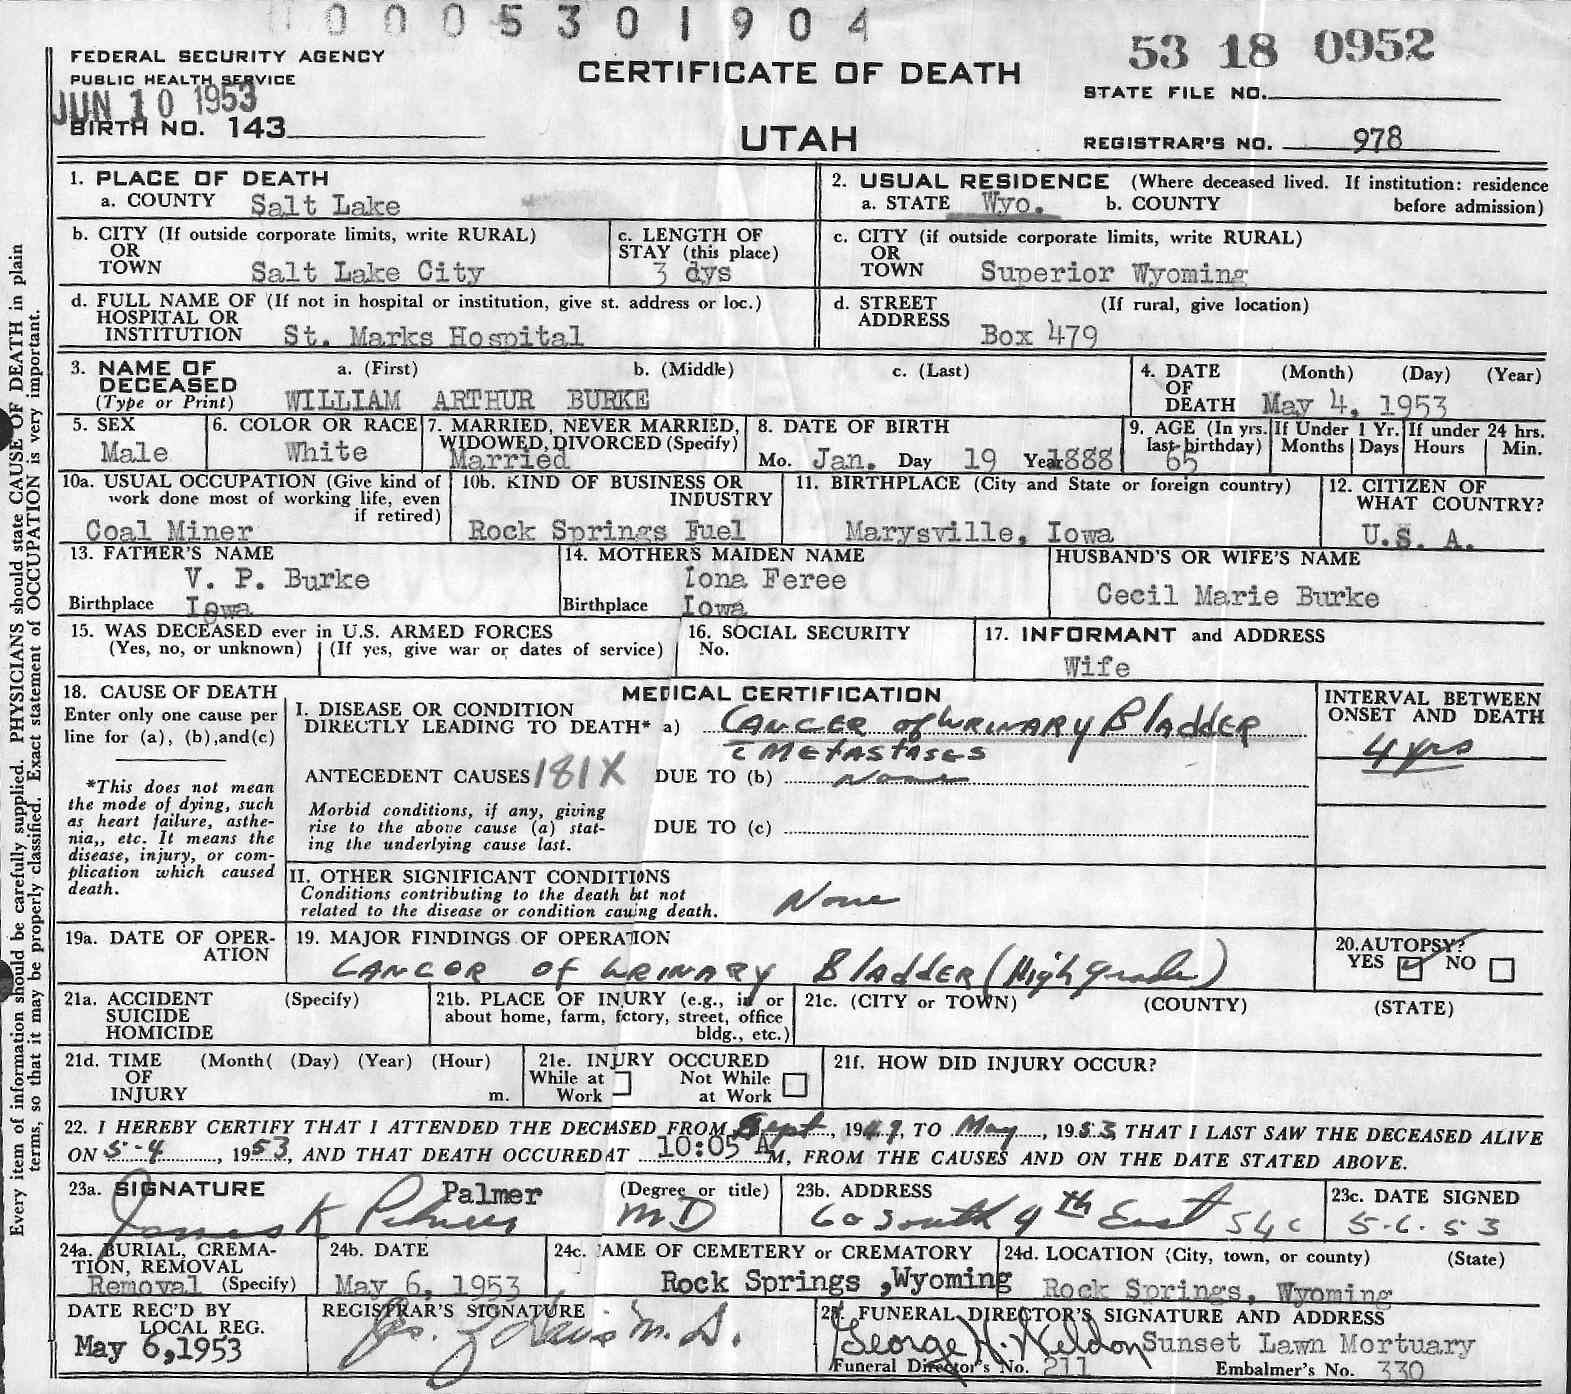 0 0 0 5 3 0 1 9 0 4
53 18 0952
FEDERAL SECURITY AGENCY
PUBLIC HEALTH SERVICE
JUN 10 1953
BIRTH NO. 143
CERTIFICATE OF DEATH
UTAH
STATE FILE NO.
REGISTRAR'S NO. 978
Every item of information should be carefully supplied. PHYSICIANS should state CAUSE OF DEATH in plain
terms, so that it may be properly classified. Exact statement of OCCUPATION is very important.
1. PLACE OF DEATH
a. COUNTY Salt Lake
2. USUAL RESIDENCE (Where deceased lived. If institution: residence
a. STATE Wyo. b. COUNTY before admission)
b. CITY (If outside corporate limits, write RURAL)
OR
TOWN Salt Lake City
c. LENGTH OF
STAY (this place)
3 dys
c. CITY (if outside corporate limits, write RURAL)
OR
TOWN Superior Wyoming
d. FULL NAME OF (If not in hospital or institution, give st. address or loc.)
HOSPITAL OR
INSTITUTION St. Marks Hospital
d. STREET (If rural, give location)
ADDRESS
Box 479
3. NAME OF a. (First) b. (Middle) c. (Last)
DECEASED
(Type or Print) WILLIAM ARTHUR BURKE
4. DATE (Month) (Day) (Year)
OF
DEATH May 4, 1953
5. SEX
Male
6. COLOR OR RACE
White
7. MARRIED, NEVER MARRIED,
WIDOWED, DIVORCED (Specify)
Married
8. DATE OF BIRTH
Mo. Jan. Day 19 Year 1888
9. AGE (In yrs.
last birthday)
65
If Under 1 Yr.
Months Days
If under 24 hrs.
Hours Min.
10a. USUAL OCCUPATION (Give kind of
work done most of working life, even
if retired)
Coal Miner
10b. KIND OF BUSINESS OR
INDUSTRY
Rock Springs Fuel
11. BIRTHPLACE (City and State or foreign country)
Marysville, Iowa
12. CITIZEN OF
WHAT COUNTRY?
U.S. A.
13. FATHER'S NAME
V. P. Burke
Birthplace Iowa
14. MOTHER'S MAIDEN NAME
Iona Feree
Birthplace Iowa
HUSBAND'S OR WIFE'S NAME
Cecil Marie Burke
15. WAS DECEASED ever in U.S. ARMED FORCES
(Yes, no, or unknown) (If yes, give war or dates of service)
16. SOCIAL SECURITY
No.
17. INFORMANT and ADDRESS
Wife
18. CAUSE OF DEATH
Enter only one cause per
line for (a), (b),and(c)
*This does not mean
the mode of dying, such
as heart failure, asthe-
nia,, etc. It means the
disease, injury, or com-
plication which caused
death.
MEDICAL CERTIFICATION
I. DISEASE OR CONDITION
DIRECTLY LEADING TO DEATH* a) CANCER of URINARY Bladder
c METASTASES
ANTECEDENT CAUSES 181X DUE TO (b) None
Morbid conditions, if any, giving
rise to the above cause (a) stat-
ing the underlying cause last.
DUE TO (c)
INTERVAL BETWEEN
ONSET AND DEATH
4 yrs
II. OTHER SIGNIFICANT CONDITIONS
Conditions contributing to the death but not
related to the disease or condition causing death.
None
19a. DATE OF OPER-
ATION
19. MAJOR FINDINGS OF OPERATION
CANCER OF URINARY Bladder (High grade)
20. AUTOPSY?
YES NO
21a. ACCIDENT (Specify)
SUICIDE
HOMICIDE
21b. PLACE OF INJURY (e.g., in or
about home, farm, fctory, street, office
bldg., etc.)
21c. (CITY or TOWN) (COUNTY) (STATE)
21d. TIME (Month( (Day) (Year) (Hour)
OF
INJURY m.
21e. INJURY OCCURED
While at Not While
Work at Work
21f. HOW DID INJURY OCCUR?
22. I HEREBY CERTIFY THAT I ATTENDED THE DECEASED FROM Sept, 1949, TO May, 1953, THAT I LAST SAW THE DECEASED ALIVE
ON 5-4, 1953, AND THAT DEATH OCCURED AT 10:05 A M, FROM THE CAUSES AND ON THE DATE STATED ABOVE.
23a. SIGNATURE Palmer (Degree or title)
James K Palmer MD
23b. ADDRESS
60 South 4th East SLC
23c. DATE SIGNED
5-6-53
24a. BURIAL, CREMA-
TION, REMOVAL
Removal (Specify)
24b. DATE
May 6, 1953
24c. NAME OF CEMETERY or CREMATORY
Rock Springs, Wyoming
24d. LOCATION (City, town, or county) (State)
Rock Springs, Wyoming
DATE REC'D BY
LOCAL REG.
May 6,1953
REGISTRAR'S SIGNATURE
M.D.
25. FUNERAL DIRECTOR'S SIGNATURE AND ADDRESS
George H. Weldon Sunset Lawn Mortuary
Funeral Director's No. 211 Embalmer's No. 330